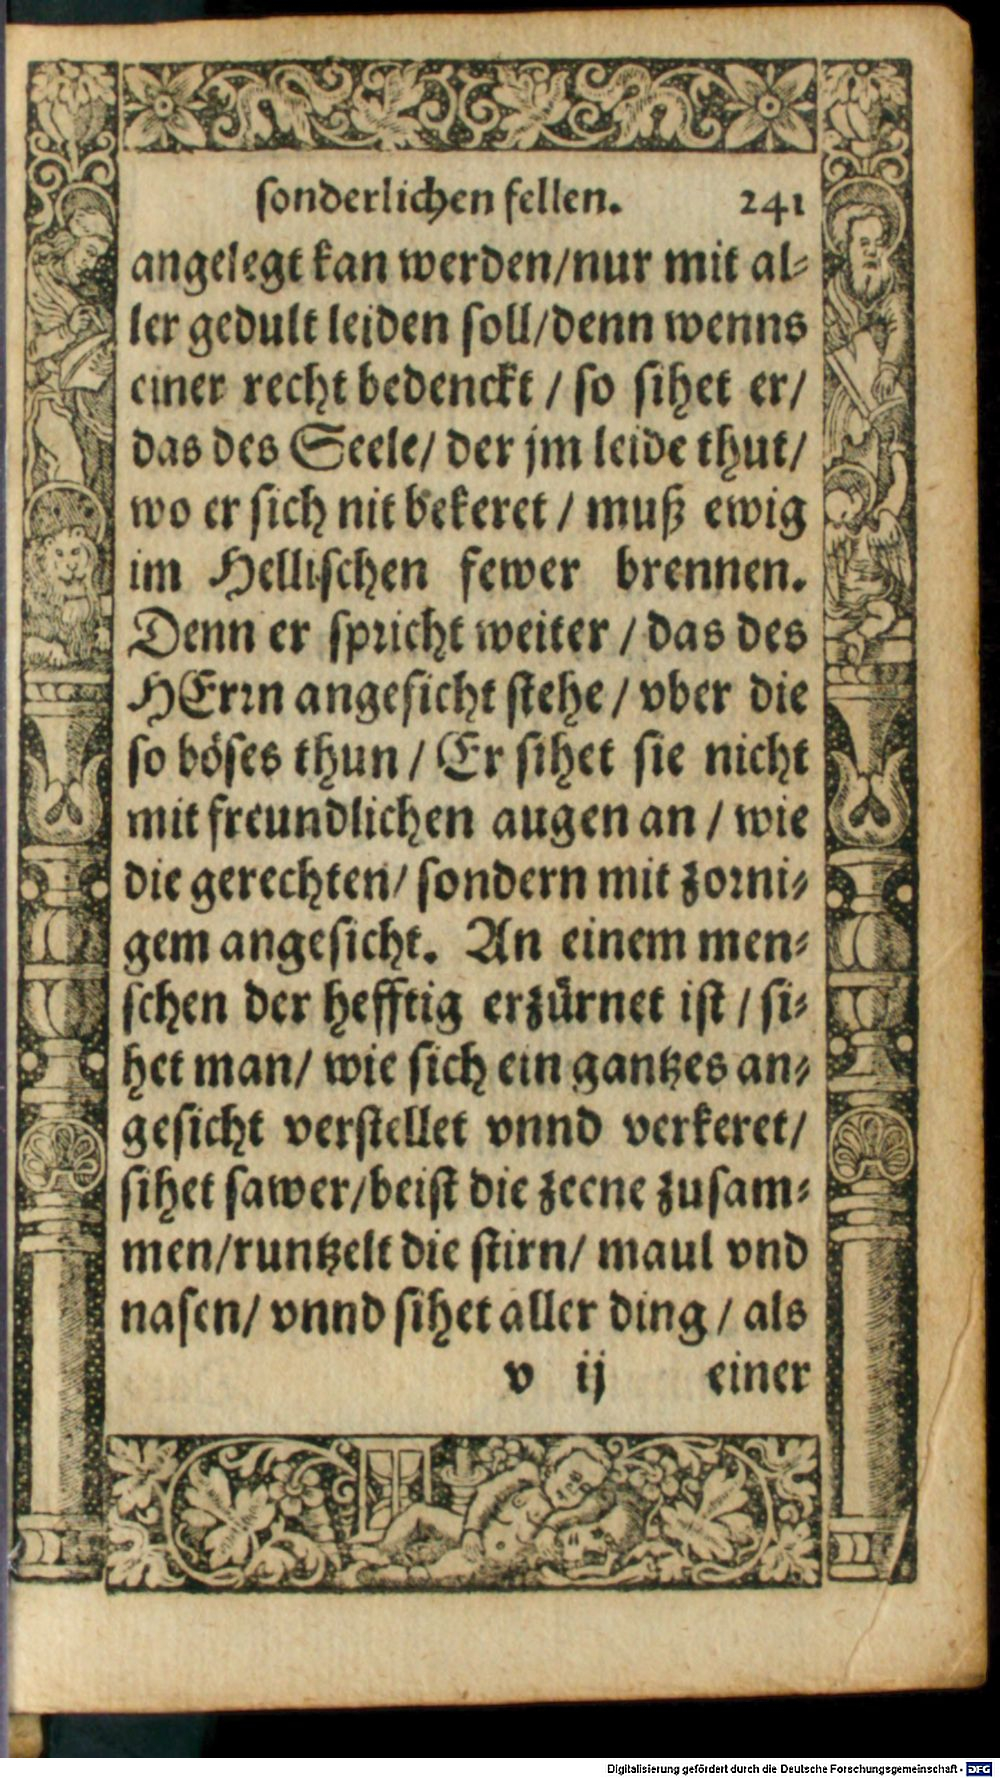 sonderlichen fellen. 241
angelegt kan werden/nur mit al⸗
ler gedult leiden soll/denn wenns
einer recht bedenckt / so sihet er/
das des Seele/ der jm leide thut/
wo er sich nit bekeret / muß ewig
im Hellischen fewer brennen.
Denn er spricht weiter / das des
HErrn angesicht stehe / vber die
so böses thun / Er sihet sie nicht
mit freundlichen augen an / wie
die gerechten/ sondern mit zorni⸗
gem angesicht. An einem men⸗
schen der hefftig erzürnet ist / si⸗
het man/ wie sich ein gantzes an⸗
gesicht verstellet vnnd verkeret/
sihet sawer/beist die zeene zusam⸗
men/runtzelt die stirn/ maul vnd
nasen/ vnnd sihet aller ding / als
v ij einer
Digitalisierung gefördert durch die Deutsche Forschungsgemeinschaft - DFG